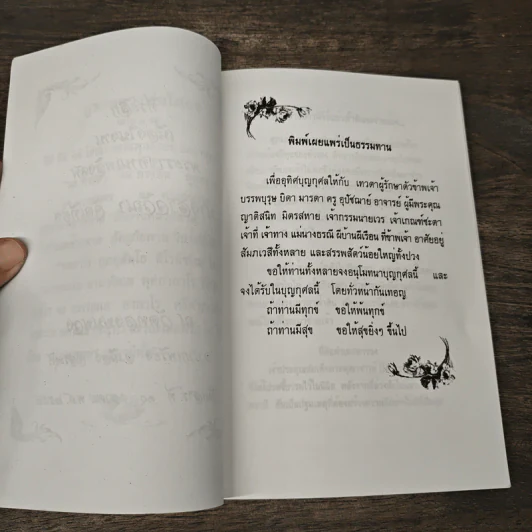 พิมพ์เผยแพร่เป็นธรรมทาน
เพื่ออุทิศบุญกุศลให้กับ เทวดาผู้รักษาตัวข้าพเจ้า
บรรพบุรุษ บิดา มารดา ครู อุปัชฌาย์ อาจารย์ ผู้มีพระคุณ
ญาติสนิท มิตรสหาย เจ้ากรรมนายเวร เจ้าเกณฑ์ชะตา
เจ้าที่ เจ้าทาง แม่นางธรณี ผีบ้านผีเรือน ที่ข้าพเจ้า อาศัยอยู่
สัมภเวสีทั้งหลาย และสรรพสัตว์น้อยใหญ่ทั้งปวง
ขอให้ท่านทั้งหลายจงอนุโมทนาบุญกุศลนี้ และ
จงได้รับในบุญกุศลนี้ โดยทั่วหน้ากันเทอญ
ถ้าท่านมีทุกข์ ขอให้พ้นทุกข์
ถ้าท่านมีสุข ขอให้สุขยิ่งๆ ขึ้นไป